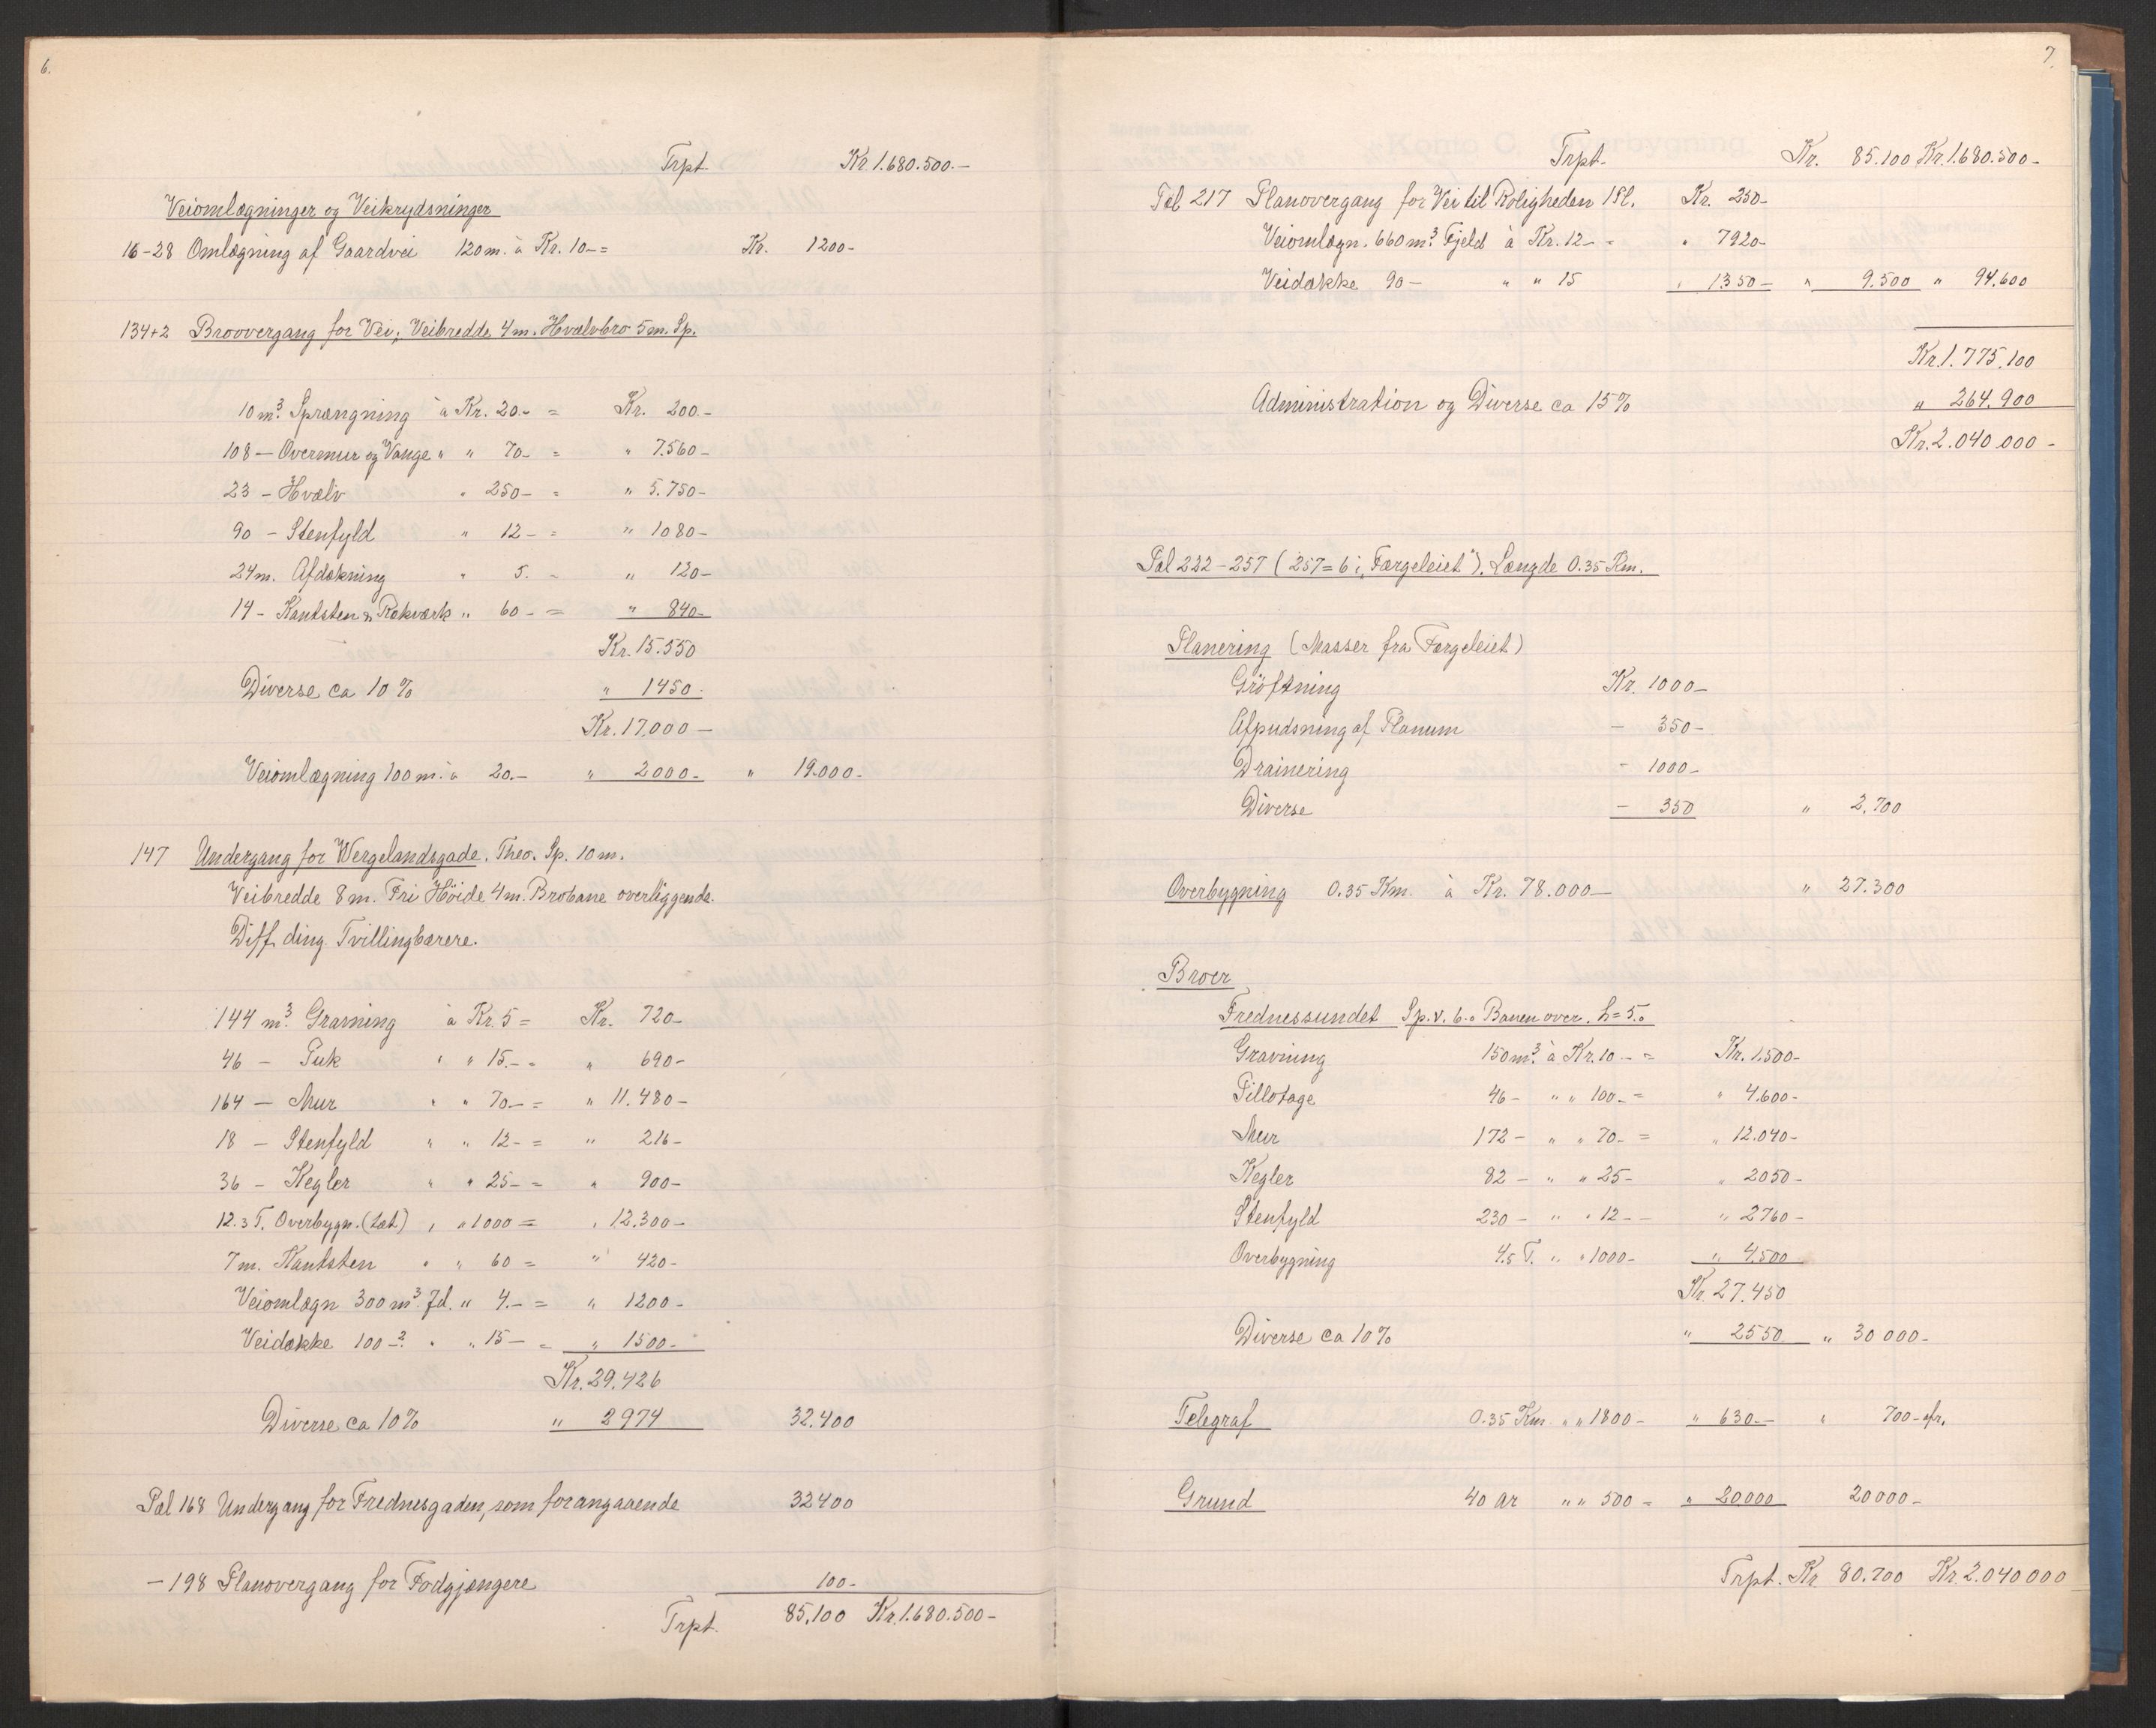 6.
Trpt. Kr. 1.680.500.-
Veiomlægninger og Veikrydsninger
16-28 Omlægning af Gaardvei 120 m. à Kr. 10.- = Kr. 1200-
134+2 Broovergang for Vei; Veibredde 4 m. Hvælvbro 5 m. Sp.
10 m³. Sprængning à Kr. 20.- = Kr. 200.-
108 — Overmur og Vange " " 70- = " 7.560-
23 - Hvælv " 250- = " 5.750-
90 - Stenfyld " 12- = " 1080-
24 m. Afdækning " 5. - " 120-
14 - Kantsten & Rækværk " 60- = " 840-
Kr. 15.550
Diverse ca 10 % " 1450.
Kr. 17.000 —
Veiomlægning 100 m. à 20.- " 2000- " 19.000.-
147 Undergang for Wergelandsgade. Theo. Sp. 10 m.
Veibredde 8 m. Fri Höide 4 m. Brobane overliggende.
Diff ding. Tvillingbærere.
144 m³. Gravning à Kr. 5 = Kr. 720-
46 — Puk " " 15.- = " 690-
164 — Mur " " 70- = " 11.480-
18 — Stenfyld " " 12- = " 216-
36 - Kegler " " 25- = " 900-
12.3 T. Overbygn. (Let) " " 1000 = " 12.300-
7 m. Kantsten " " 60 = " 420-
Veiomlægn 300 m³. Jd. " 4.- = " 1200-
Veidække 100 -² " " 15- = " 1500-
Kr. 29.426
Diverse ca 10 % " 2974 32.400
Pæl 168 Undergang for Frednesgaden, som forangaaende 32400
— 198 Planovergang for Fodgjængere 100-
Trpt. 85.100 Kr. 1.680.500-
7.
Trpt. Kr. 85.100 Kr. 1.680.500-
Pæl 217 Planovergang for Vei til Roligheden 1 Sl. Kr. 230-
Veiomlægn. 660 m³. Fjeld à Kr. 12- = " 7920-
Veidække 90 — " " 15 " 1350- " 9.500 " 94.600
Kr. 1.775.100
Administration og Diverse ca 15 % " 264.900
Kr. 2.040.000-
Pæl 222 - 257 (257 = 6 i „Færgeleiet"). Længde 0.35 Km.
Planering (Masser fra Færgeleiet)
Gröftning Kr. 1000-
Afpudsning af Planum — 350-
Drainering - 1000-
Diverse — 350 " 2.700
Overbygning 0.35 Km. à Kr. 78.000— " 27.300
Broer
Frednessundet Sp.v. 6.0 Banen over. h = 5.0
Gravning 150 m³. à Kr. 10- = Kr. 1.500-
Pillotage 46- " " 100- = " 4.600-
Mur 172- " " 70- = " 12.040-
Kegler 82- " " 25- " 2050-
Stenfyld 230- " " 12- - " 2760-
Overbygning 4.5 T. " " 1000- " 4.500
Kr. 27.450
Diverse ca 10 % " 2550 " 30 000-
Telegraf 0.35 Km. " " 1800- " 630- " 700- afr.
Grund 40 ar " " 500 = " 20.000 20000-
Trpt. Kr. 80.700 Kr. 2.040 000